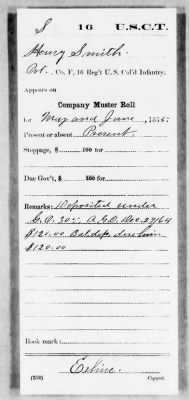 S 16 U.S.C.T.
Henry Smith
Pvt., Co. F, 16 Reg't U.S. Col'd Infantry.
Appears on
Company Muster Roll
for May and June, 1865.
Present or absent Present
Stoppage, $ 100 for
Due Gov't, $ 100 for
Remarks: Deposited under
G.O. 305 A.G.O. Dec. 27/64
$120.00 Bal dep
$120.00
Book mark:
(358) Copyist.